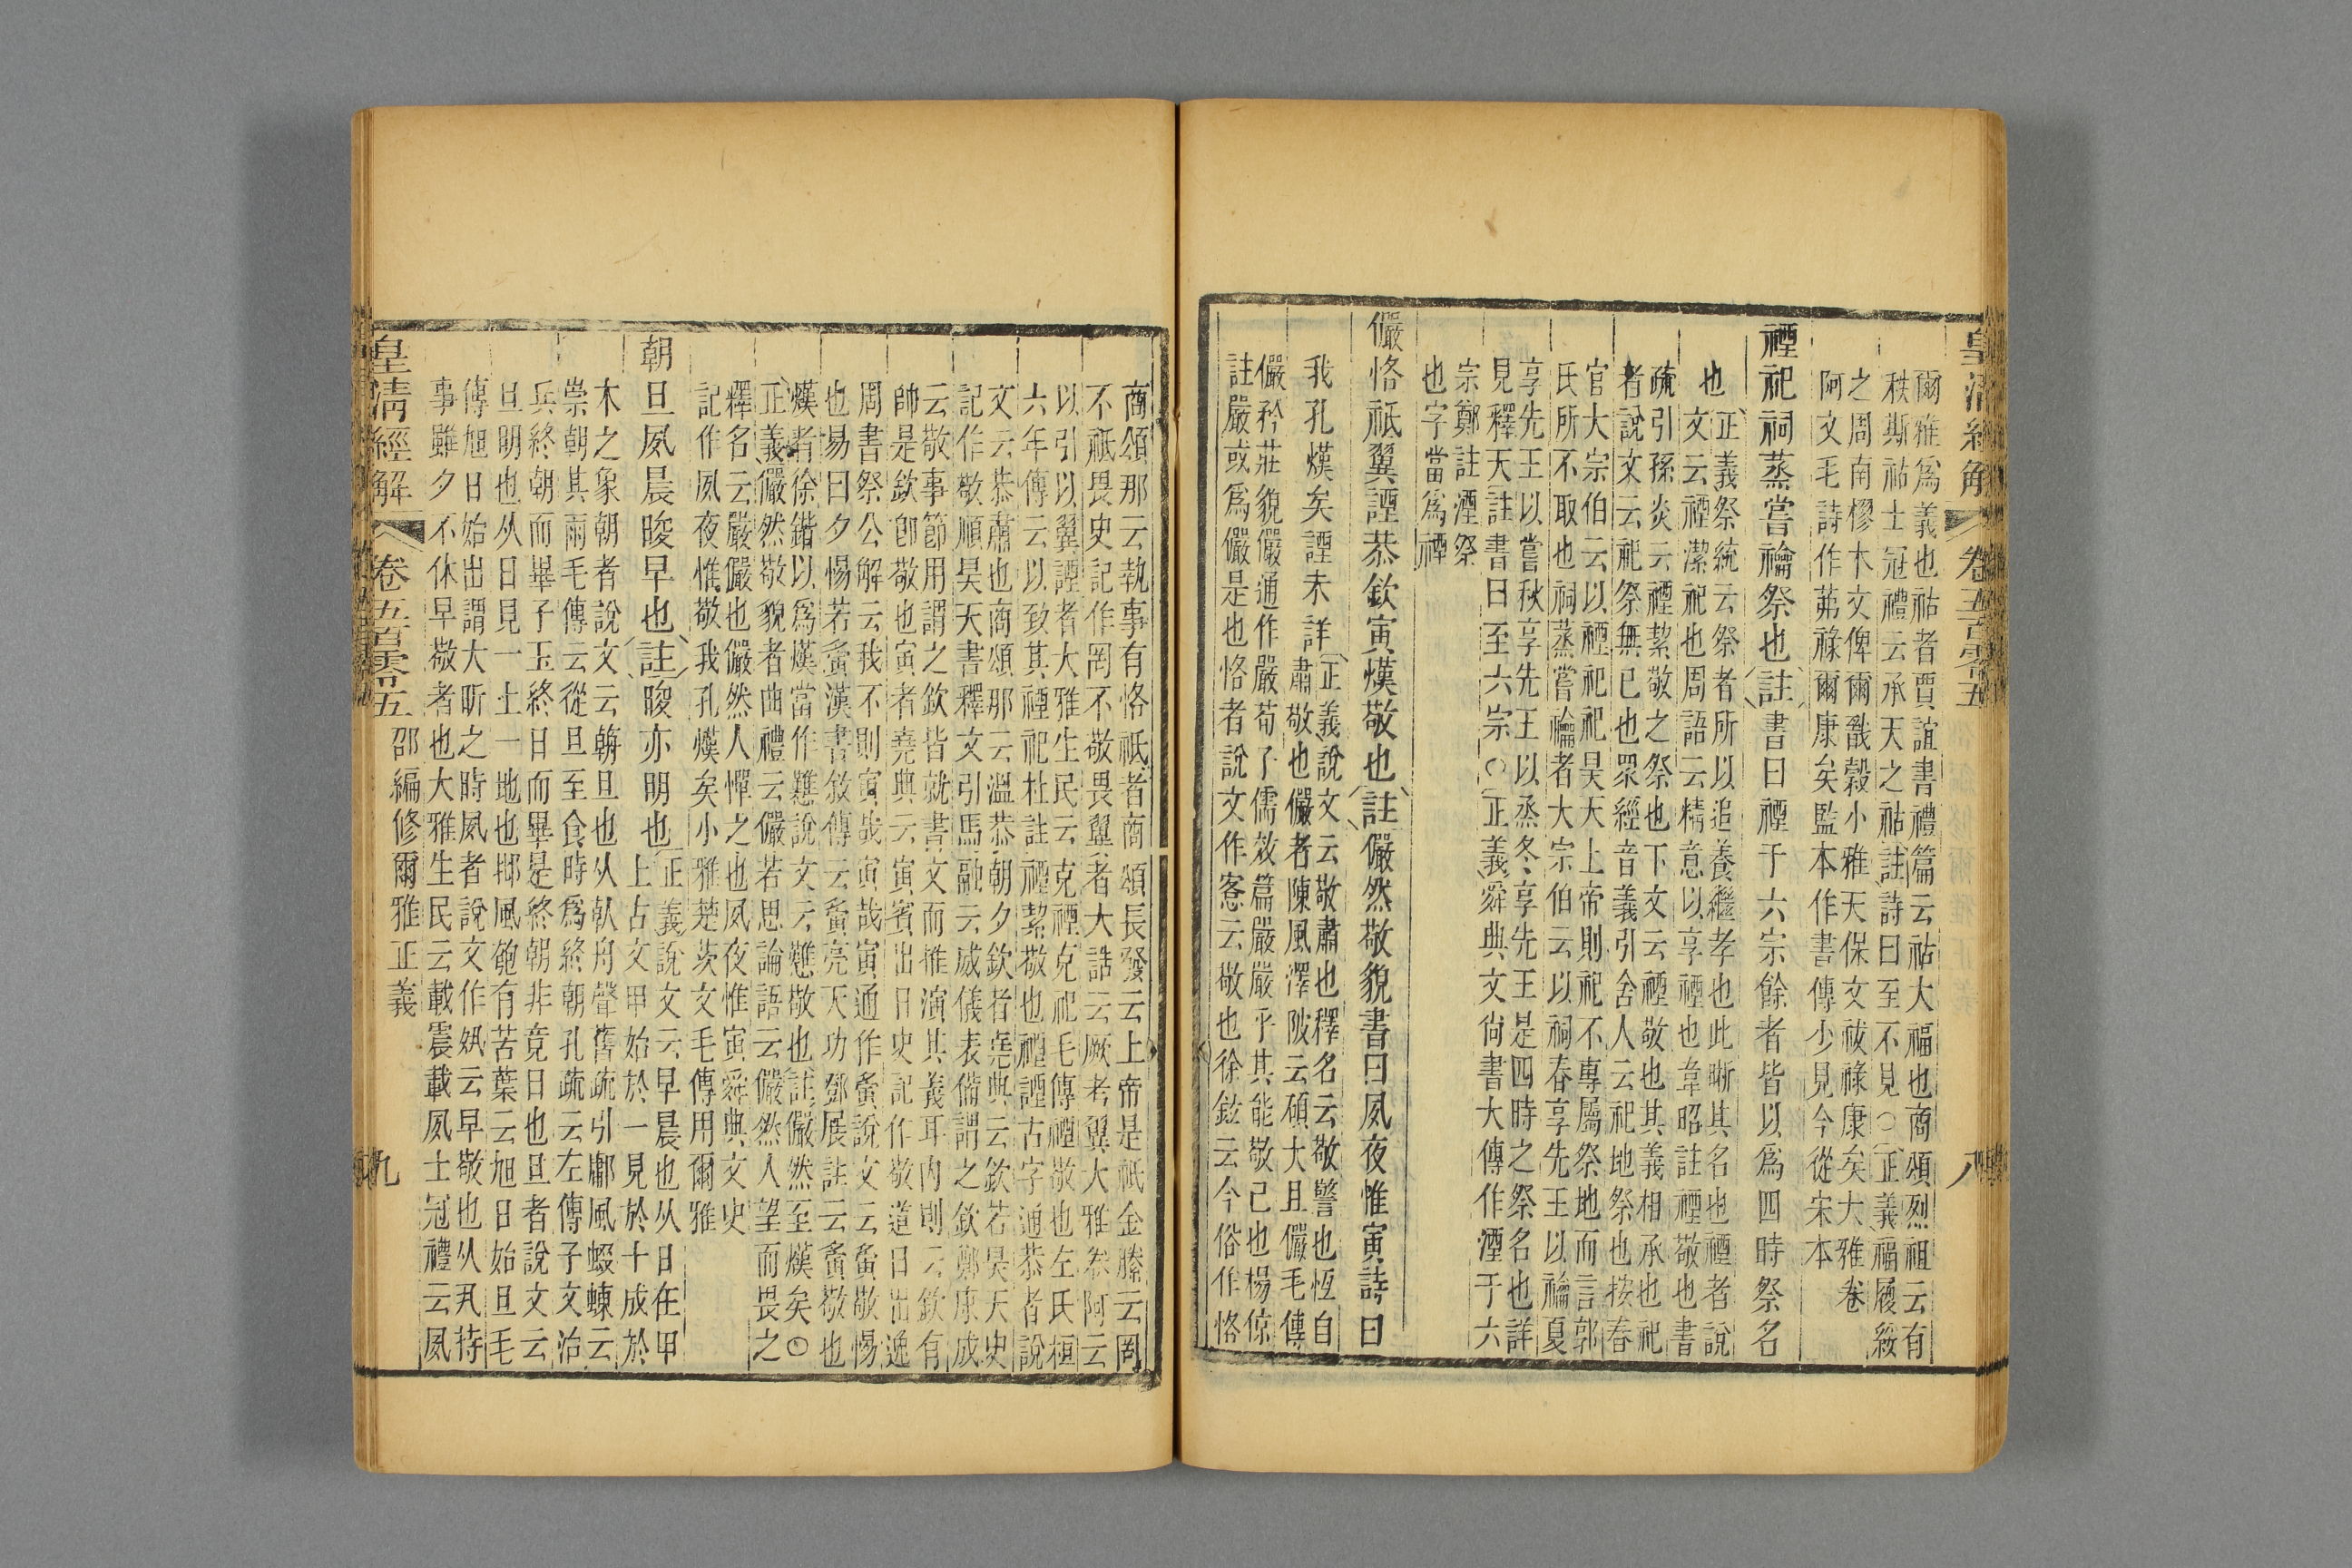 皇清經解
卷五百零五
八
爾雅爲義也祜者賈誼書禮篇云祜大福也商頌烈祖云有
秩斯祜士冠禮云承天之祜註詩曰至不見○正義福履綏
之周南樛木文俾爾戩榖小雅天保文祓祿康矣大雅卷
阿文毛詩作茀祿爾康矣監本作書傳少見今從宋本
禋祀祠蒸嘗禴祭也註書曰禋于六宗餘者皆以爲四時祭名
也
正義祭統云祭者所以追養繼孝也此晰其名也禋者說
文云禋潔祀也周語云精意以享禋也韋昭註禋敬也書
疏引孫炎云禋絜敬之祭也下文云禋敬也其義相承也祀
者說文云祀祭無已也眾經音義引舍人云祀地祭也按春
官大宗伯云以禋祀祀昊天上帝則祀不專屬祭地而言郭
氏所不取也祠蒸嘗禴者大宗伯云以祠春享先王以禴夏
享先王以嘗秋享先王以烝冬享先王是四時之祭名也詳
見釋天註書曰至六宗○正義舜典文尙書大傳作湮于六
宗鄭註湮祭
也字當爲禋
儼恪祇翼諲恭欽寅熯敬也註儼然敬貌書曰夙夜惟寅詩曰
我孔熯矣諲未詳
正義說文云敬肅也釋名云敬警也恆自
肅敬也儼者陳風澤陂云碩大且儼毛傳
儼矜莊貌儼通作嚴荀子儒效篇嚴嚴乎其能敬己也楊倞
註嚴或爲儼是也恪者說文作愙云敬也徐鉉云今俗作恪
商頌那云執事有恪祇者商頌長發云上帝是祇金縢云罔
不祇畏史記作罔不敬畏翼者大誥云厥考翼大雅卷阿云
以引以翼諲者大雅生民云克禋克祀毛傳禋敬也左氏桓
六年傳云以致其禋祀杜註禋絜敬也禋諲古字通恭者說
文云恭肅也商頌那云溫恭朝夕欽者堯典云欽若昊天史
記作敬順昊天書釋文引馬融云威儀表備謂之欽鄭康成
云敬事節用謂之欽皆就書文而推演其義耳內則云欽有
帥是欽卽敬也寅者堯典云寅賓出日史記作敬道日出逸
周書祭公解云我不則寅哉寅哉寅通作夤說文云夤敬惕
也易曰夕惕若夤漢書敘傳云夤亮天功鄧展註云夤敬也
熯者徐鍇以爲熯當作戁說文云戁敬也註儼然至熯矣○
正義儼然敬貌者曲禮云儼若思論語云儼然人望而畏之
釋名云嚴儼也儼然人憚之也夙夜惟寅舜典文史
記作夙夜惟敬我孔熯矣小雅楚茨文毛傳用爾雅
朝旦夙晨晙早也註晙亦明也
正義說文云早晨也从日在甲
上占文甲始於一見於十成於
木之象朝者說文云朝旦也从倝舟聲舊疏引鄘風蝃蝀云
崇朝其雨毛傳云從旦至食時爲終朝孔疏云左傳子文治
兵終朝而畢子玉終日而畢是終朝非竟日也旦者說文云
旦明也从日見一上一地也邶風匏有苦葉云旭日始旦毛
傳旭日始出謂大昕之時夙者說文作夙云早敬也从丮持
事雖夕不休早敬者也大雅生民云載震載夙士冠禮云夙
皇清經解
卷五百零五
邵編修爾雅正義
九